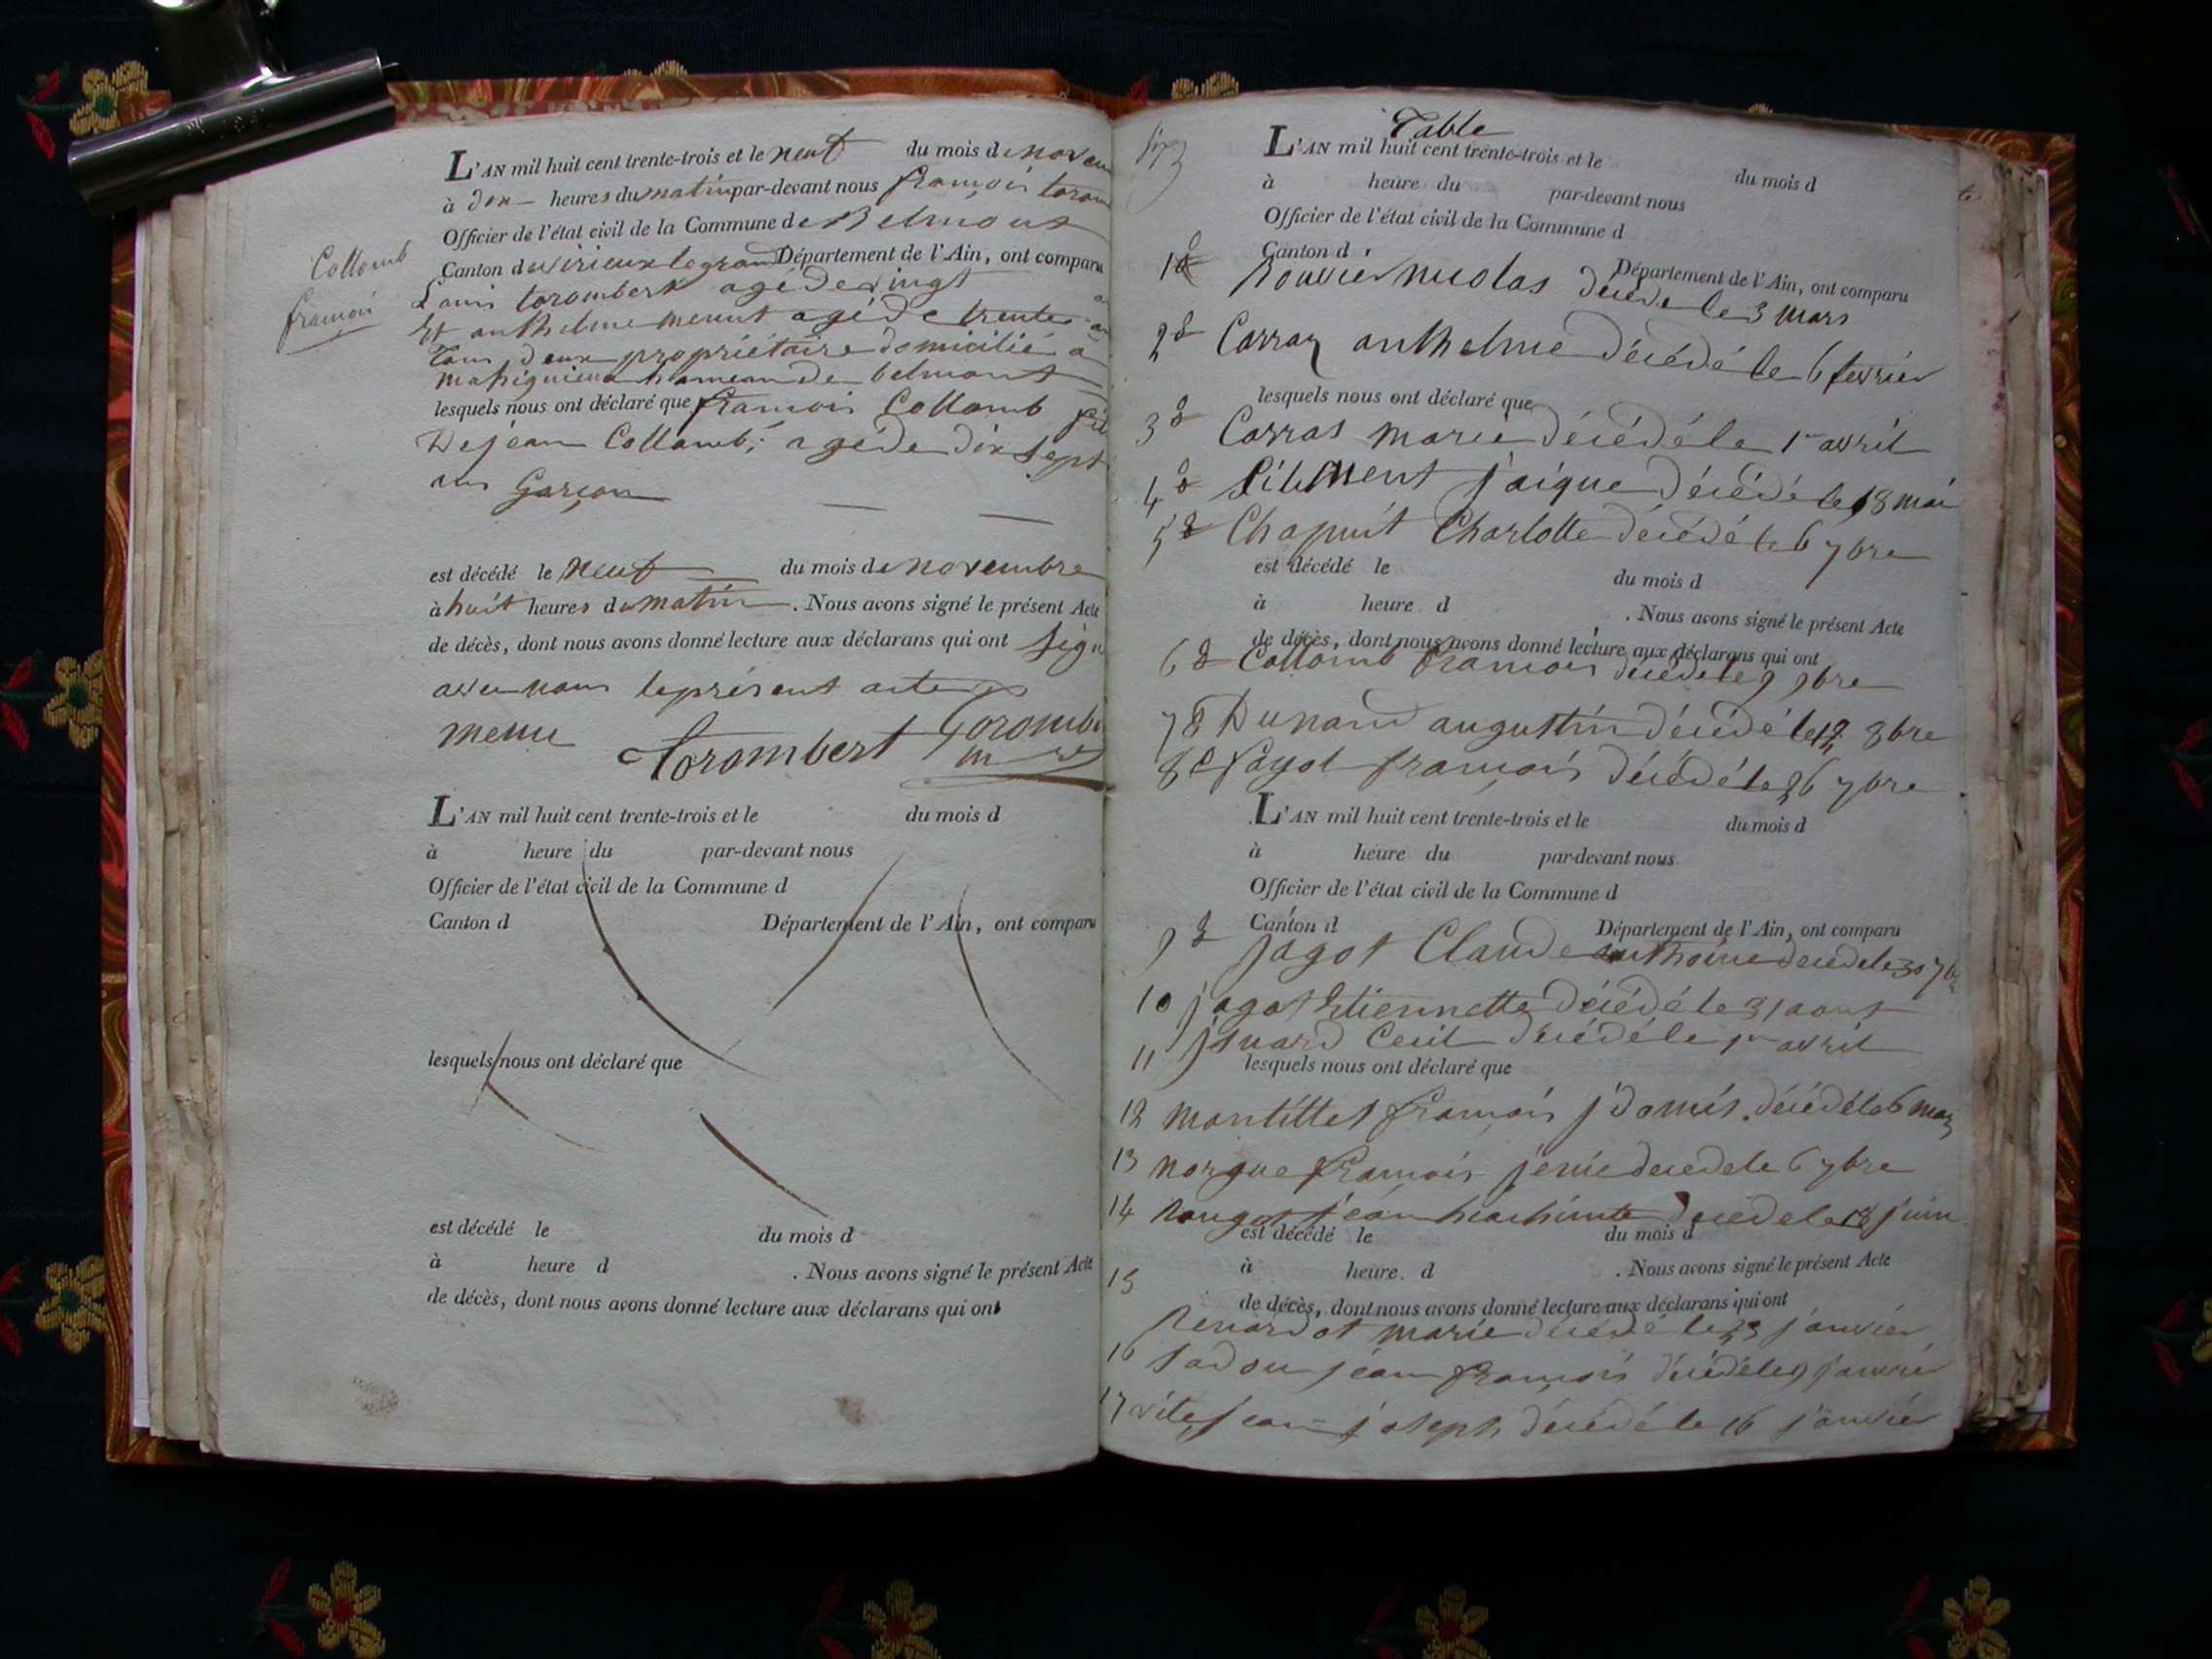 Collomb
francois
L'AN mil huit cent trente-trois et le neuf du mois de novem
à dix heures du matin par-devant nous françois torom
Officier de l'état civil de la Commune de Belmont
Canton de virieux le grand Département de l'Ain, ont comparu
Louis torombert agé de vingt
Et anthelme menut agé de trente
Tous deux propriétaire domicilié a
hameau de belmont
lesquels nous ont déclaré que francois Collomb fil
De jean Collomb, agé de dix sept
ans Garçon
est décédé le neuf du mois de novembre
à huit heures du matin. Nous avons signé le présent Acte
de décès, dont nous avons donné lecture aux déclarans qui ont signé
avec nous le présent acte
menu torombert Torombe
L'AN mil huit cent trente-trois et le du mois d
à heure du par-devant nous
Officier de l'état civil de la Commune d
Canton d Département de l'Ain, ont comparu
lesquels nous ont déclaré que
est décédé le du mois d
à heure d . Nous avons signé le présent Acte
de décès, dont nous avons donné lecture aux déclarans qui ont
Table
L'AN mil huit cent trente-trois et le du mois d
à heure du par-devant nous
Officier de l'état civil de la Commune d
Canton d Département de l'Ain, ont comparu
1 nicolas décédé le 3 mars
2 Carraz anthelme décédé le 6 fevrier
lesquels nous ont déclaré que
3 Carras marie décédé le 1er avril
4 décédé le 18 mai
5 Chapuit Charlotte décédé le 6 7bre
est décédé le du mois d
à heure d . Nous avons signé le présent Acte
de décès, dont nous avons donné lecture aux déclarans qui ont
6 Collomb francois décédé le 9 9bre
7 Dunand augustin décédé le 8bre
8 francois décédé le 26 7bre
L'AN mil huit cent trente-trois et le du mois d
à heure du par-devant nous
Officier de l'état civil de la Commune d
Canton d Département de l'Ain, ont comparu
9 jagot Claude anthoine decede le 30 7bre
10 jagot Etiennette décédé le 31 aout
11 décédé le 1er avril
lesquels nous ont déclaré que
12 montillet francois décédé le 6
13 francois decede le 6 7bre
14 jean decede le 18 juin
est décédé le du mois d
à heure d . Nous avons signé le présent Acte
15
de décès, dont nous avons donné lecture aux déclarans qui ont
Renardot marie décédé le 23 janvier
16 jean francois décédé le 9 janvier
17 jean joseph décédé le 16 janvier